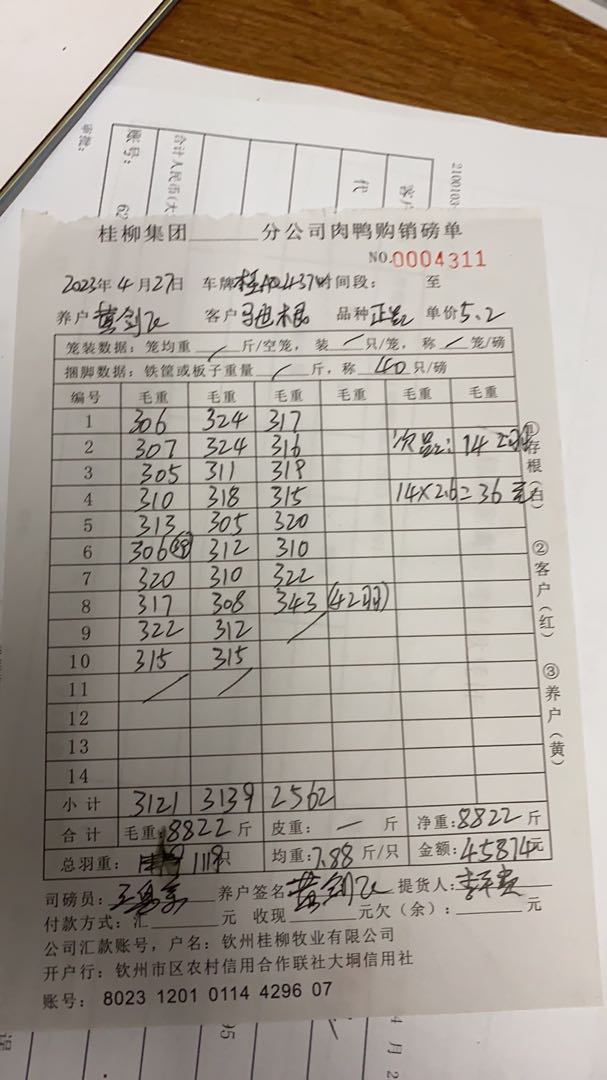 桂柳集团______分公司肉鸭购销磅单
NO.0004311
2023年4月27日 车牌 时间段： 至
养户 黄剑飞 客户 马进根 品种 正品 单价5.2
笼装数据：笼均重 / 斤/空笼，装 / 只/笼，称 / 笼/磅
捆脚数据：铁筐或板子重量 / 斤，称 40 只/磅
编号 毛重 毛重 毛重 毛重 毛重 毛重
1 306 324 317
2 307 324 316 次品：14
3 305 311 319
4 310 318 315 14×2.6=36元
5 313 305 320
6 306 312 310
7 320 310 322
8 317 308 343 (42羽)
9 322 312 /
10 315 315
11 / /
12
13
14
小计 3121 3139 2562
合计 毛重：8822 斤 皮重：— 斤 净重：8822 斤
总羽重： 1119只 均重：7.88 斤/只 金额：45874元
司磅员： 养户签名 黄剑飞 提货人：
付款方式：汇______元 收现______元欠（余）：______元
公司汇款账号，户名：钦州桂柳牧业有限公司
开户行：钦州市区农村信用合作联社大垌信用社
账号： 8023 1201 0114 4296 07
①存根（白）
②客户（红）
③养户（黄）
审批：
账号： 62
合计人民币(大
代
客户
2100103
4 月 2